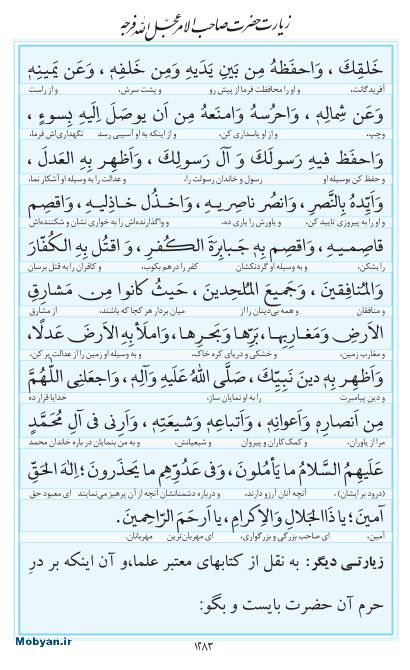 زیارت حضرت صاحب الامر عجل الله فرجه
خَلقِكَ ، وَاحفَظهُ مِن بَینِ یَدَیهِ وَمِن خَلفِهٖ ، وَعَن یَمینِهٖ
آفریدگانت، و او را محافظت فرما از پیش رو و پشت سرش، و از راست
وَعَن شِمالِهٖ، وَاحرُسهُ وَامنَعهُ مِن اَن یوصَلَ اِلَیهِ بِسوءٍ ،
وچپ، و از او پاسداری کن، و از اینکه به او آسیبی رسد نگهداری‌اش فرما،
وَاحفَظ فیهِ رَسولَكَ وَ آلَ رَسولِكَ ، وَاَظهِر بِهِ العَدلَ ،
و حفظ کن بوسیله او رسول و خاندان رسولت را، و عدالت را به وسیله او آشکار نما،
وَاَیِّدهُ بِالنَّصرِ ، وَانصُر ناصِریهِ ، وَاخـذُل خاذِلیهِ ، وَاقصِم
و او را به پیروزی تایید کن، و یاورش را یاری ده، و واگذارنده‌اش را به خواری نشان و شکننده‌اش
قاصِمـیهِ ، وَاقصِم بِهٖ جَبابِرَةَ الكُـفرِ ، وَ اقتُل بِهِ الكُفّارَ
را بشکن، و به وسیله او گردنکشان کفر را درهم بکوب، و کافران را به قتل برسان
وَالمُنافِقینَ ، وَجَمیعَ المُلحِدینَ ، حَیثُ كانوا مِن مَشارِقِ
و منافقان و همه بی‌دینان را از میان بردار هر کجا که باشند، از مشارق
الاَرضِ وَمَغارِبِها، بَرِّها وَبَحرِها، وَاملَأ بِهِ الاَرضَ عَدلًا،
و مغارب زمین، و خشکی و دریای کره خاک، و به وسیله او زمین را از عدالت پر کن،
وَاَظهِر بِهٖ دینَ نَبِیِّكَ ، صَلَّی اللهُ عَلَیهِ وَآلِهٖ ، وَاجعَلنِی اللّهُمَّ
و دین پیامبرت را به او نمایان ساز، خدایا قرار ده
مِن اَنصارِهٖ وَاَعوانِهٖ ، وَاَتباعِهٖ وَشیعَتِهٖ، وَاَرِنی فی آلِ مُحَمَّدٍ
مرا از یاوران، و کمک کاران و پیروان و شیعیانش، و به من بنمایان در باره خاندان محمد
عَلَیهِمُ السَّلامُ ما یَأمُلونَ، وَفی عَدُوِّهِم ما یَحذَرونَ؛ اِلٰهَ الحَقِّ
(درود بر ایشان) ، آنچه آنان آرزو دارند، و درباره دشمنانشان آنچه از آن پرهیز می‌نمایند ای معبود حق
آمینَ؛ یا ذَا الجَلالِ وَالاِكرامِ، یا اَرحَمَ الرّاحِمینَ.
آمین، ای صاحب بزرگی و بزرگواری، ای مهربان‌ترین مهربانان.
زیارتـی دیگر: به نقل از کتابهای معتبر علماء، و آن اینکه بر درِ
حرم آن حضرت بایست و بگو:
۱۲۸۳
Mobyan.ir